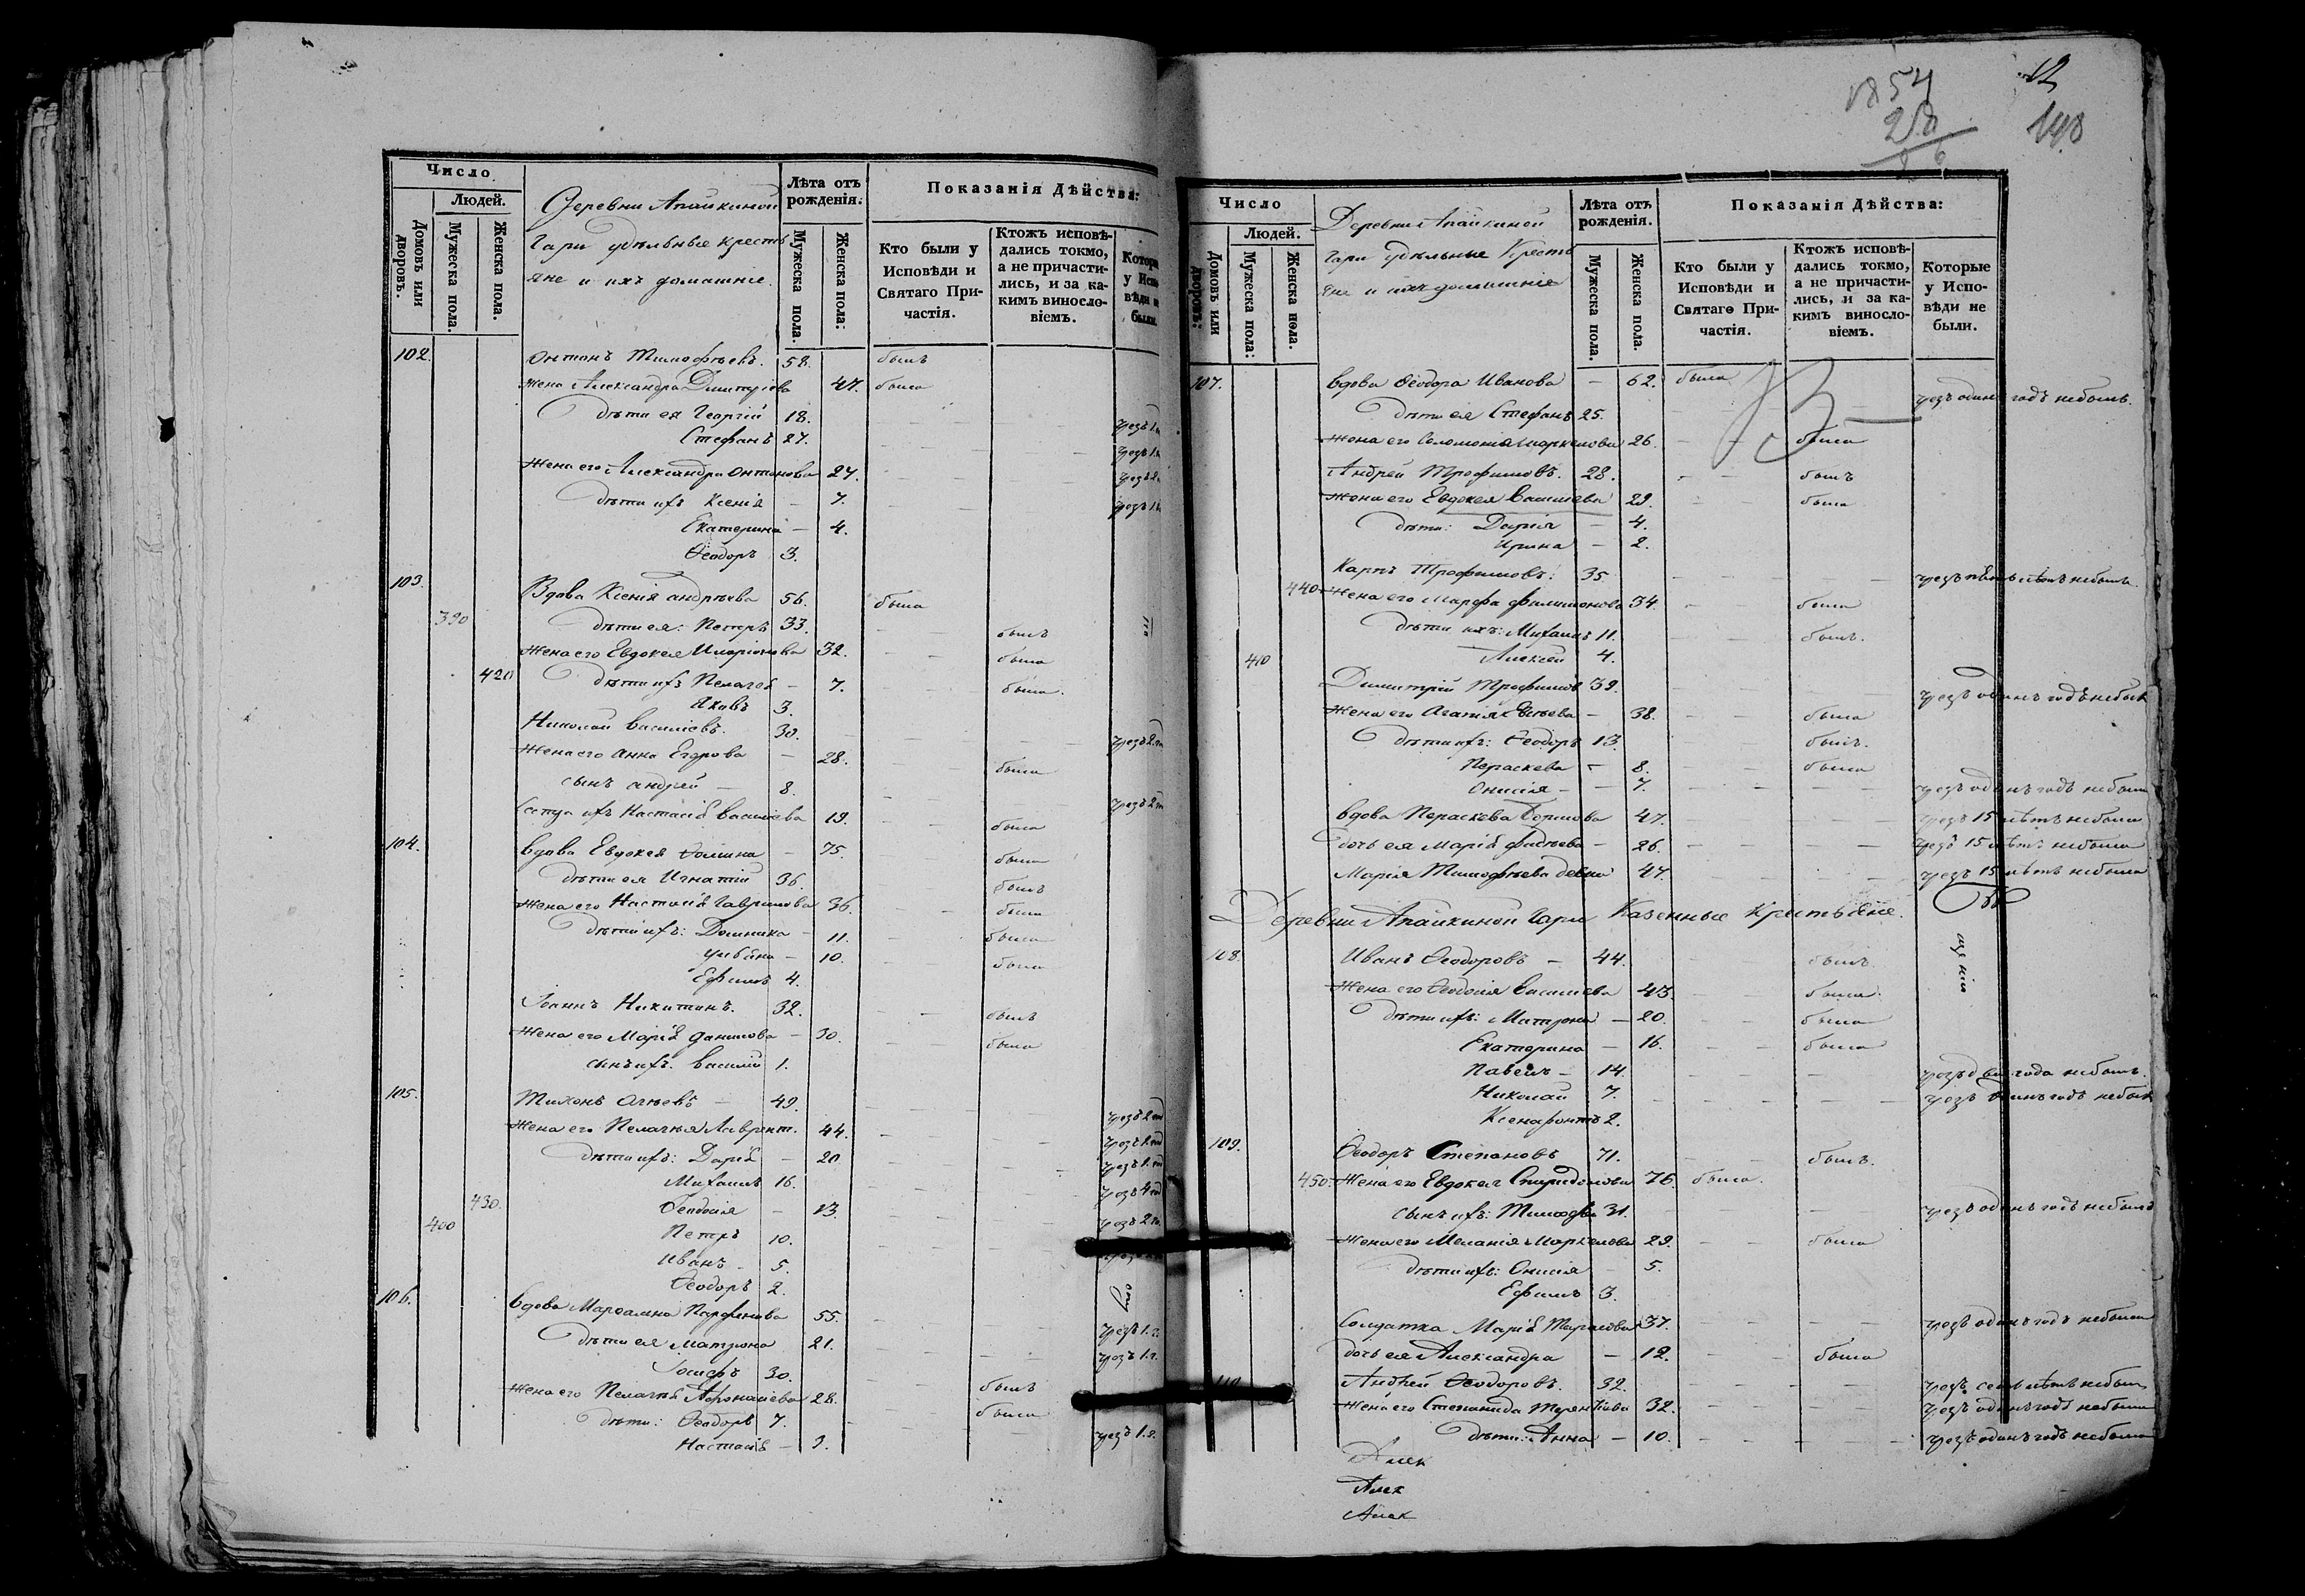 Число
Людей.
Домовъ или дворовъ.
Мужеска пола.
Женска пола.
Деревни Апайкиной
Гари удѣльные кресть
яне и ихъ домашніе.
Лѣта отъ рожденія:
Мужеска пола.
Женска пола:
Показанія Дѣйства:
Кто были у Исповѣди и Святаго Причастія.
Ктожъ исповѣдались токмо, а не причастились, и за какимъ винословіемъ.
102. Антонъ Тимофѣевъ. 58. былъ
жена Александра Димитріева 47. была
дѣти ея Георгій 18.
Стефанъ 27.
жена его Александра Антонова 27.
дѣти ихъ Ксенія — 7.
Екатерина — 4.
Ѳеодоръ 3.
103. Вдова Ксенія Андрѣева 56. была
390 дѣти ея: Петръ 33. былъ
жена его Евдокея Иларіонова 32. была
420 дѣти ихъ Пелагея — 7. была.
Яковъ 3.
Николай Васильевъ. 30.
Жена его Анна Егорова — 28. была
сынъ Андрей — 8.
Сестра ихъ Настасія Васильева 19. была
104. Вдова Евдокея Ѳомина — 75. была
дѣти ея Игнатій 36. былъ
жена его Настасія Гаврилова 36. была
дѣти ихъ: Домника — 11. была
Ульяна — 10. была
Ефимъ 4.
Іоаннъ Никитинъ. 32. былъ
жена его Марія Данилова — 30. была
сынъ ихъ Василій 1.
105. Тихонъ — 49.
жена его Пелагея Лаврент. 44.
дѣти ихъ: Дарія — 20
Михаилъ 16.
430. Ѳеодосія — 13.
400 Петръ 10.
Иванъ — 5.
Ѳеодоръ 2.
106. вдова Парфенова 55.
дѣти ея Матрона 21.
Іосифъ 30. былъ
жена его Пелагея Афонасіева 28. была
дѣти: Ѳеодоръ 7.
Настасія — 9.
1854
12
198
Число
Людей.
Домовъ или дворовъ:
Мужеска пола:
Женска пола.
Деревни Апайкиной
Гари удѣльные Кресть
яне и ихъ домашніе
Лѣта отъ рожденія.
Мужеска пола.
Женска пола.
Показанія Дѣйства:
Кто были у Исповѣди и Святаго Причастія.
Ктожъ исповѣдались токмо, а не причастились, и за какимъ винословіемъ.
Которые у Исповѣди не были.
107. вдова Ѳеодора Иванова — 62. была
дѣти ея Стефанъ 25. чрезъ одинъ годъ небылъ.
жена его Соломонія Маркелова 26. была
Андрей Трофимовъ. 28. былъ
жена его Евдокея Васильева 29. была
дѣти: Дарія — 4.
Ирина — 2.
Карпъ Трофимовъ. 35
440 жена его Марфа Филимонова 34. была
дѣти ихъ: Михаилъ 11. былъ.
410 Алексей 4.
Димитрій Трофимовъ 39. чрезъ одинъ годъ небылъ
жена его Агапія — 38. была
дѣти ихъ: Ѳеодоръ 13. былъ.
Параскева — 8. была
Онисія — 7. чрезъ одинъ годъ небыла
вдова Параскева — 47. чрезъ 15 лѣтъ небыла
дочь ея Марія — 26. чрезъ 15 лѣтъ небыла
Марія Тимофѣева девка 47. чрезъ 15 лѣтъ небыла
Деревни Апайкиной Гари Казенные Крестьяне.
108. Иванъ Ѳеодоровъ — 44. былъ.
жена его Ѳеодосія Васильева 43. была.
дѣти ихъ: Матрона — 20. была
Екатерина — 16. была
Павелъ — 14. чрезъ два года небылъ.
Николай 7. чрезъ одинъ годъ небылъ
Ксенофонтъ 2.
109. Ѳеодоръ Степановъ 71. былъ.
450 Жена его Евдокея Спиридонова 76. была.
сынъ ихъ: Тимофей 31. чрезъ одинъ годъ небылъ
жена его Меланія Маркелова 29. была
дѣти ихъ: Онисія — 5.
Ефимъ 3.
Солдатка Марія Тарасова 37. чрезъ одинъ годъ небыла
дочь ея Александра — 12. была
110. Андрей Ѳеодоровъ. 32. чрезъ семь лѣтъ небылъ
жена его Степанида Терентіева 32. чрезъ одинъ годъ небыла
дѣти: Анна — 10. чрезъ одинъ годъ небыла
Алек
Алек
Алек